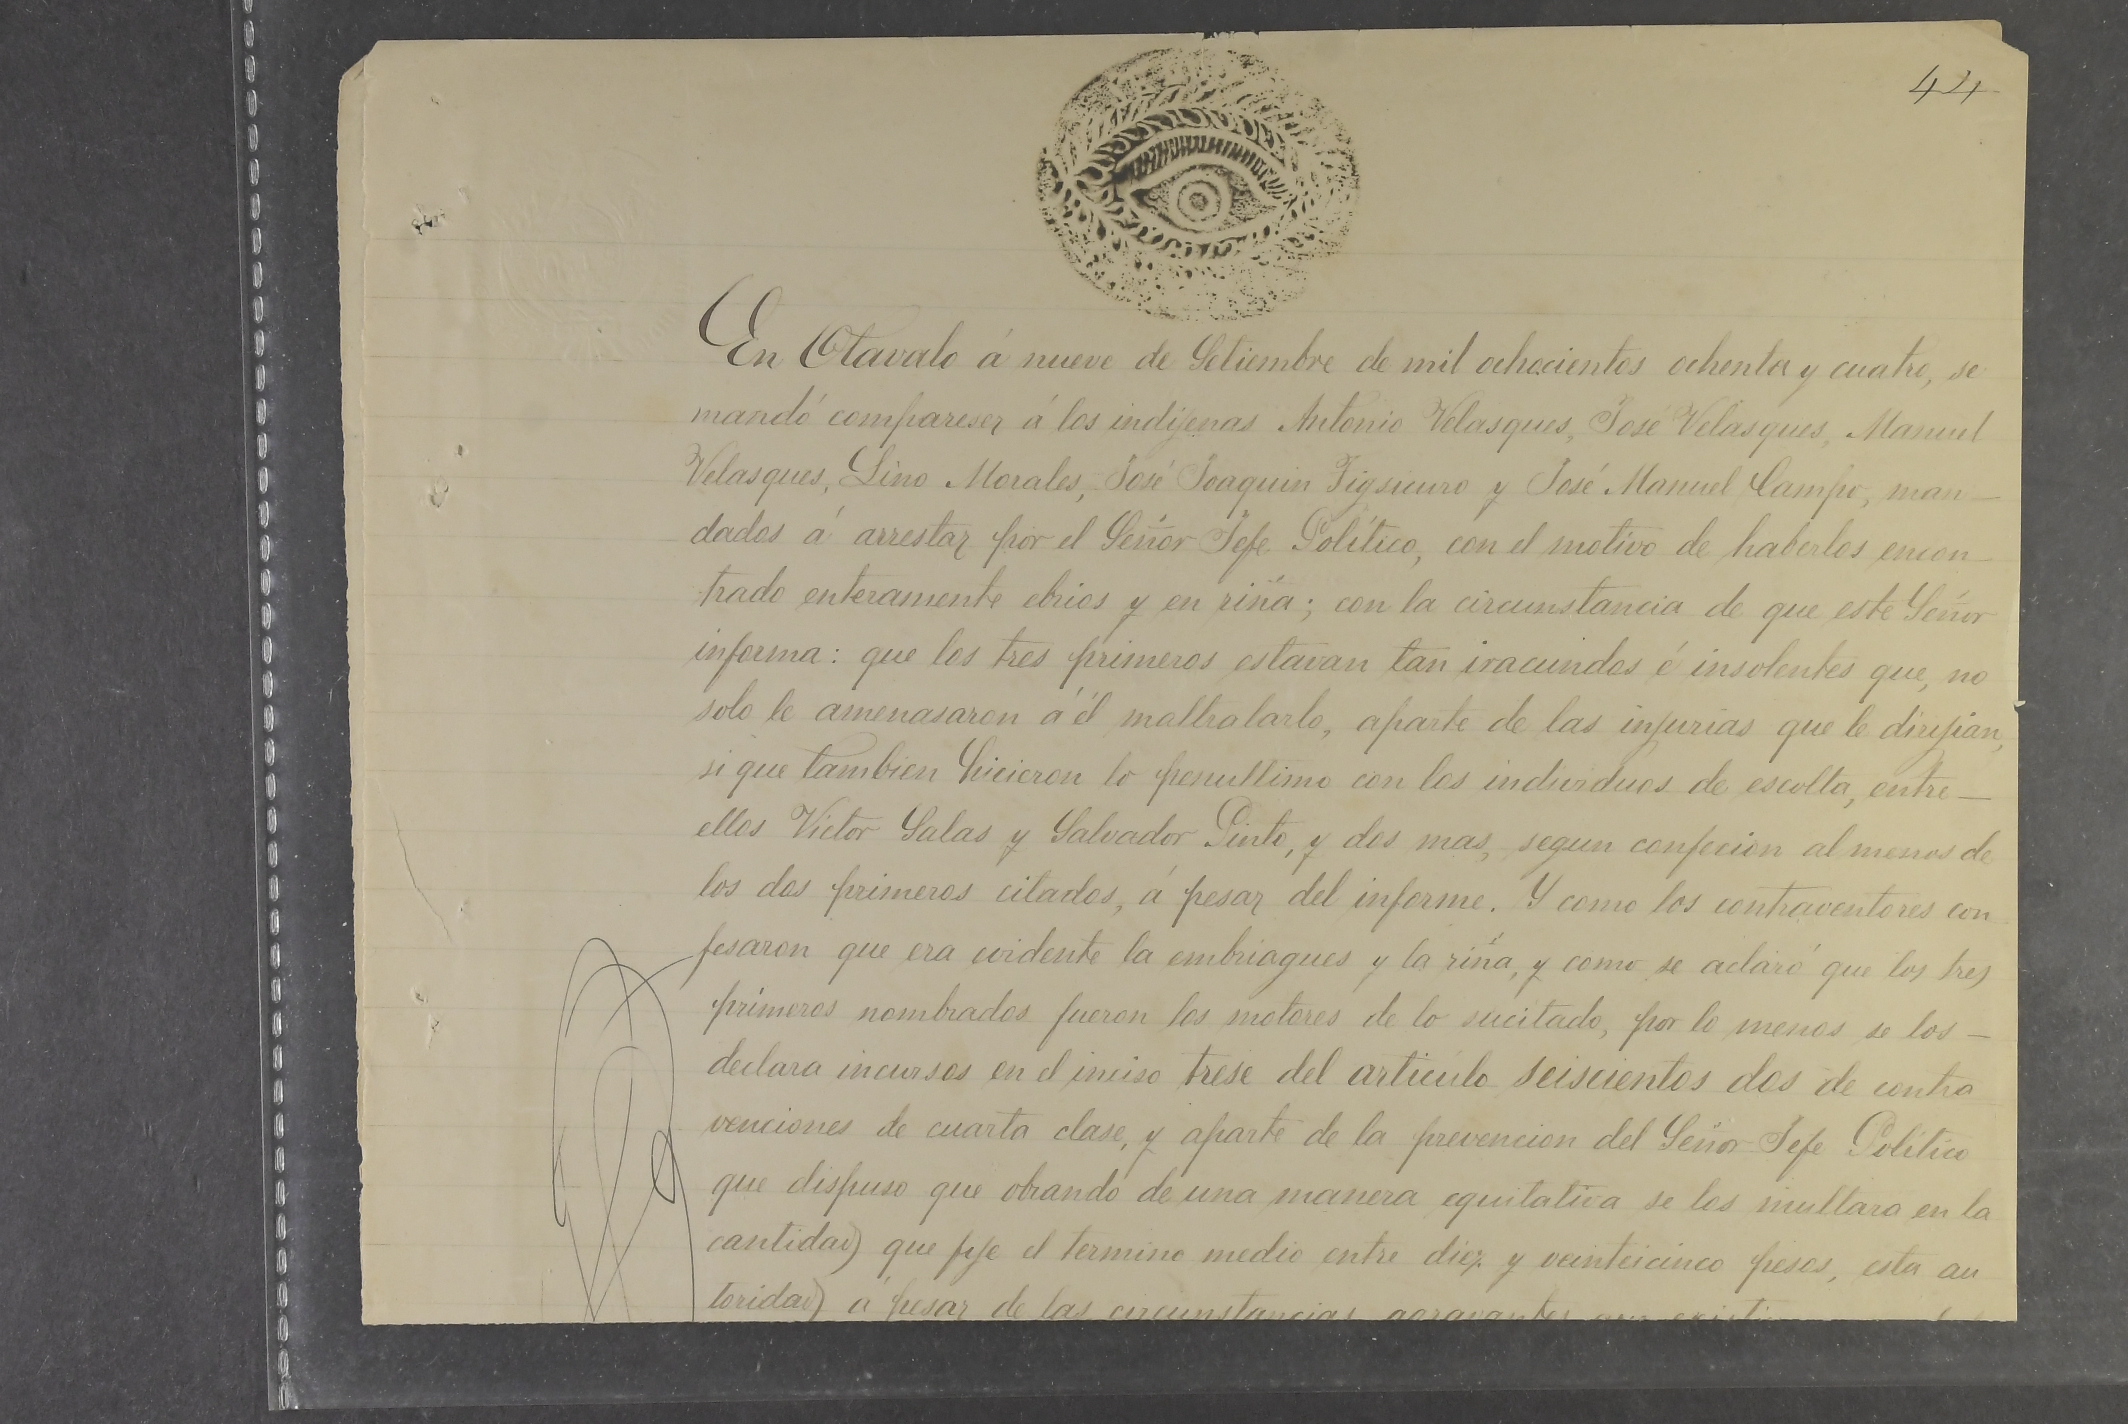 424
En Otavalo á nueve de Setiembre de mil ochocientos ochenta y cuatro, se
mandó compareser á los indijenas Antonio Velasques, José Velasques, Manuel
Velasques, Lino Morales, José Joaquin Tigsicuro y José Manuel Campo, man–
dados á arrestar por el Señor Jefe Político, con el motivo de haberlos encon–
trado enteramente ebrios y en riña; con la circunstancia de que este Señor
informa: que los tres primeros estavan tan iracundos é insolentes que, no
solo le amenasaron á él maltratarlo, aparte de las injurias que le dirijian,
si que tambien hicieron lo penultimo con los individuos de escolta, entre–
ellos Victor Salas y Salvador Pinto, y dos mas, segun confecion al menos de
los dos primeros citados, á pesar del informe. Y como los contraventores con
fesaron que era evidente la embriagues y la riña, y como se aclaró que los tres
primeros nombrados fueron los motores de lo sucitado, por lo menos se los–
declara incursos en el inciso trese del articulo seiscientos dos de contra
venciones de cuarta clase, y aparte de la prevencion del Señor Jefe Político
que dispuso que obrando de una manera equitativa se los multara en la
cantidad que fije el termino medio entre diez y veinteicinco pesos, esta au
toridad á pesar de las circunstancias agravantes que